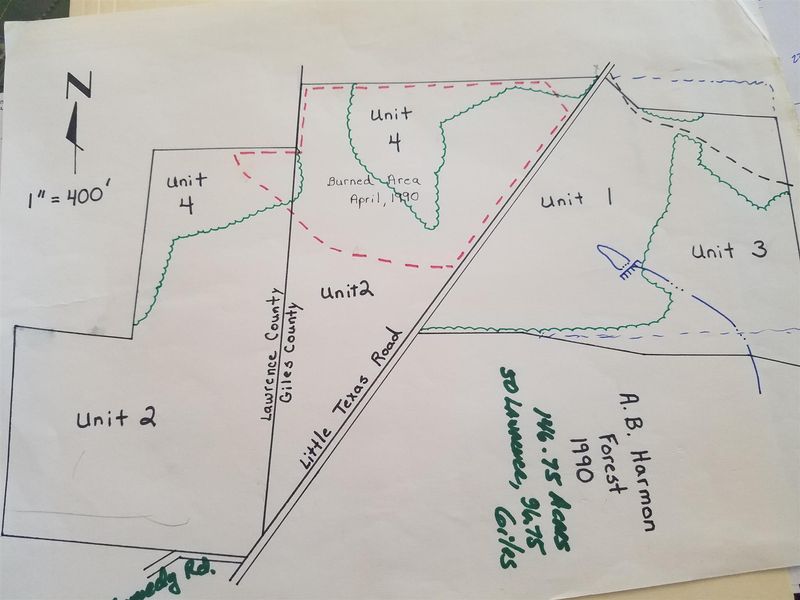 N
1" = 400'
Unit
4
Unit
4
Burned Area
April, 1990
Unit 1
Unit 3
Unit2
Unit 2
Lawrence County
Giles County
Little Texas Road
A. B. Harmon
Forest
1990
146.75 Acres
50 Lawrence, 96.75
Giles
Rd.